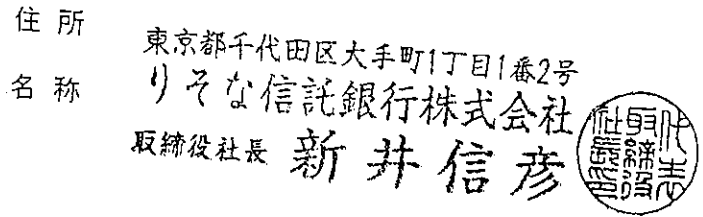 住所
東京都千代田区大手町1丁目1番2号
名称
りそな信託銀行株式会社
取締役社長 新井信彦
代表取締役社長印